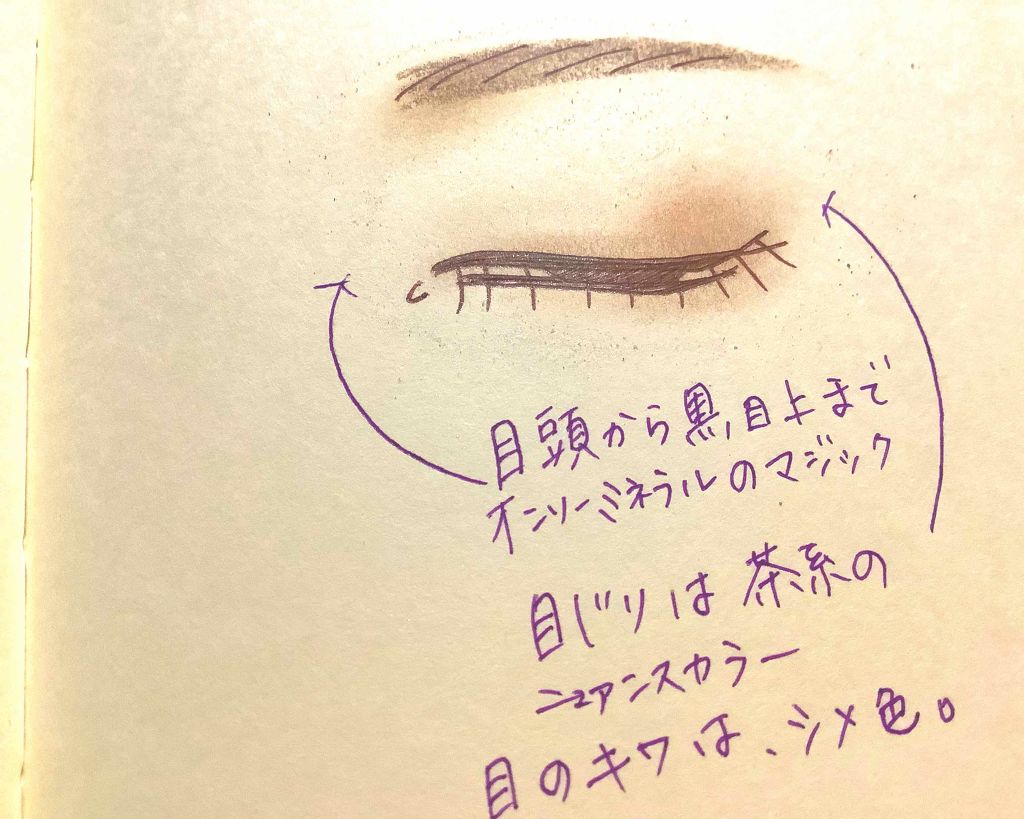 目頭から黒目上まで
オンリーミネラルのマジック
目じりは茶系の
ニュアンスカラー
目のキワは、シメ色。